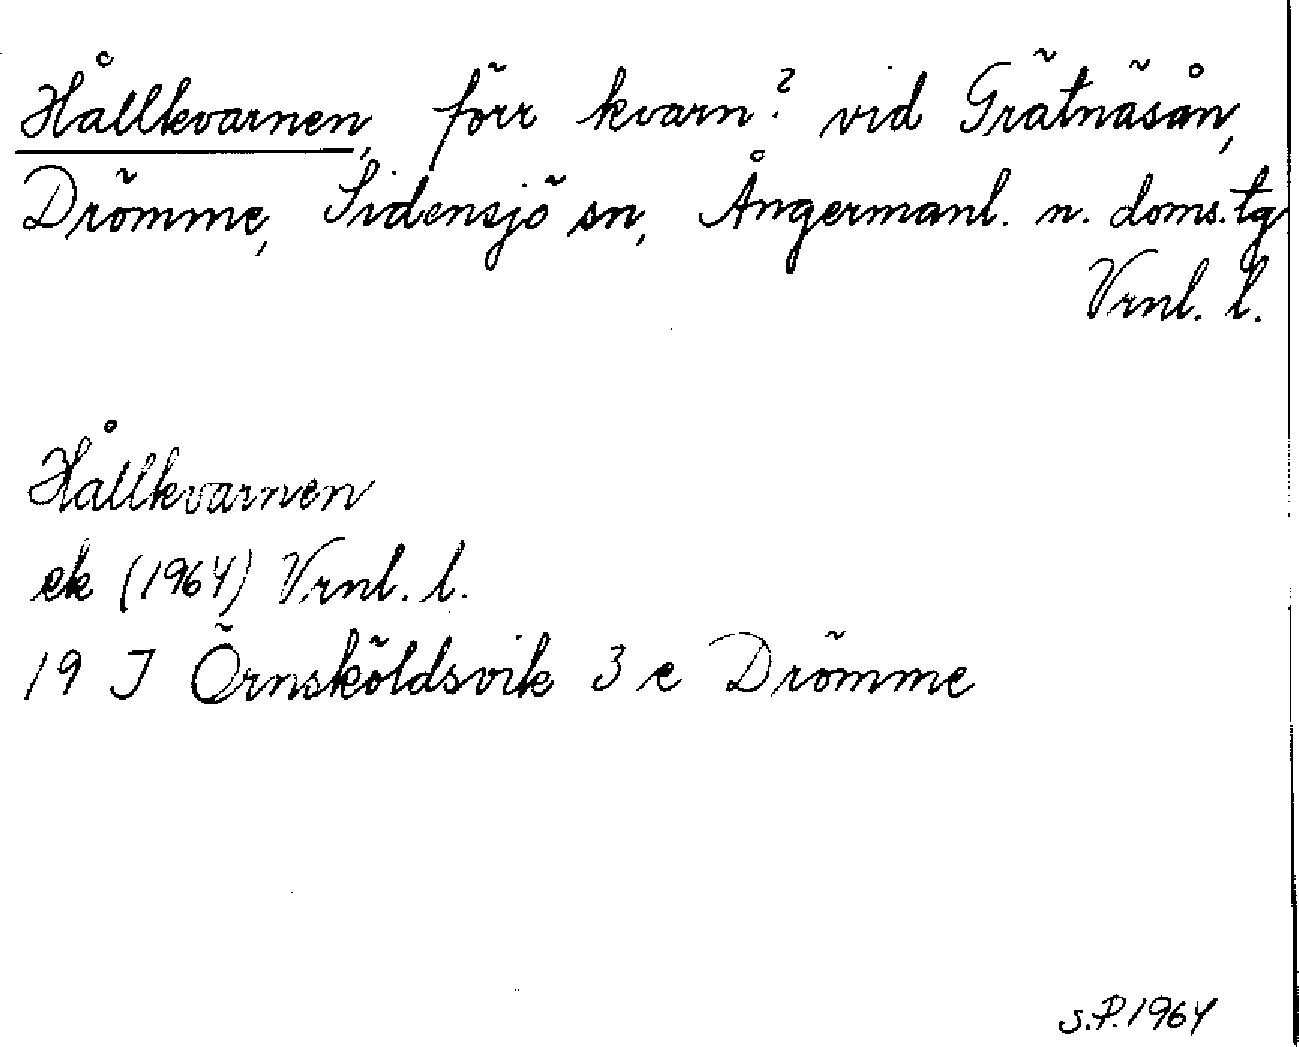 Hållkvarnen, förr kvarn? vid Grätnäsån,
Drömme, Sidensjö sn, Ångermanl. n. doms. tg
Vrnl. l.
Hållkvarnen
ek (1964) Vrnl. l.
19 J Örnsköldsvik 3 e Drömme
S.P. 1964